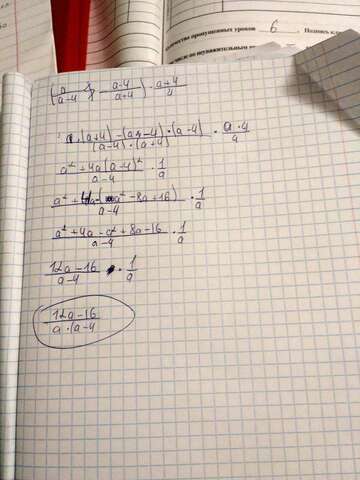 Количество пропущенных уроков 6. Подпись кл
числе по неуважительным
(a/(a-4) - (a-4)/(a+4)) · (a+4)/4
(a·(a+4) - (a-4)·(a-4))/((a-4)·(a+4)) · (a·4)/4
(a² + 4a(a-4)²)/(a-4) · 1/a
(a² + 4a-(a² - 8a+16))/(a-4) · 1/a
(a² + 4a - a² + 8a - 16)/(a-4) · 1/a
(12a - 16)/(a-4) · 1/a
(12a - 16)/(a·(a-4)